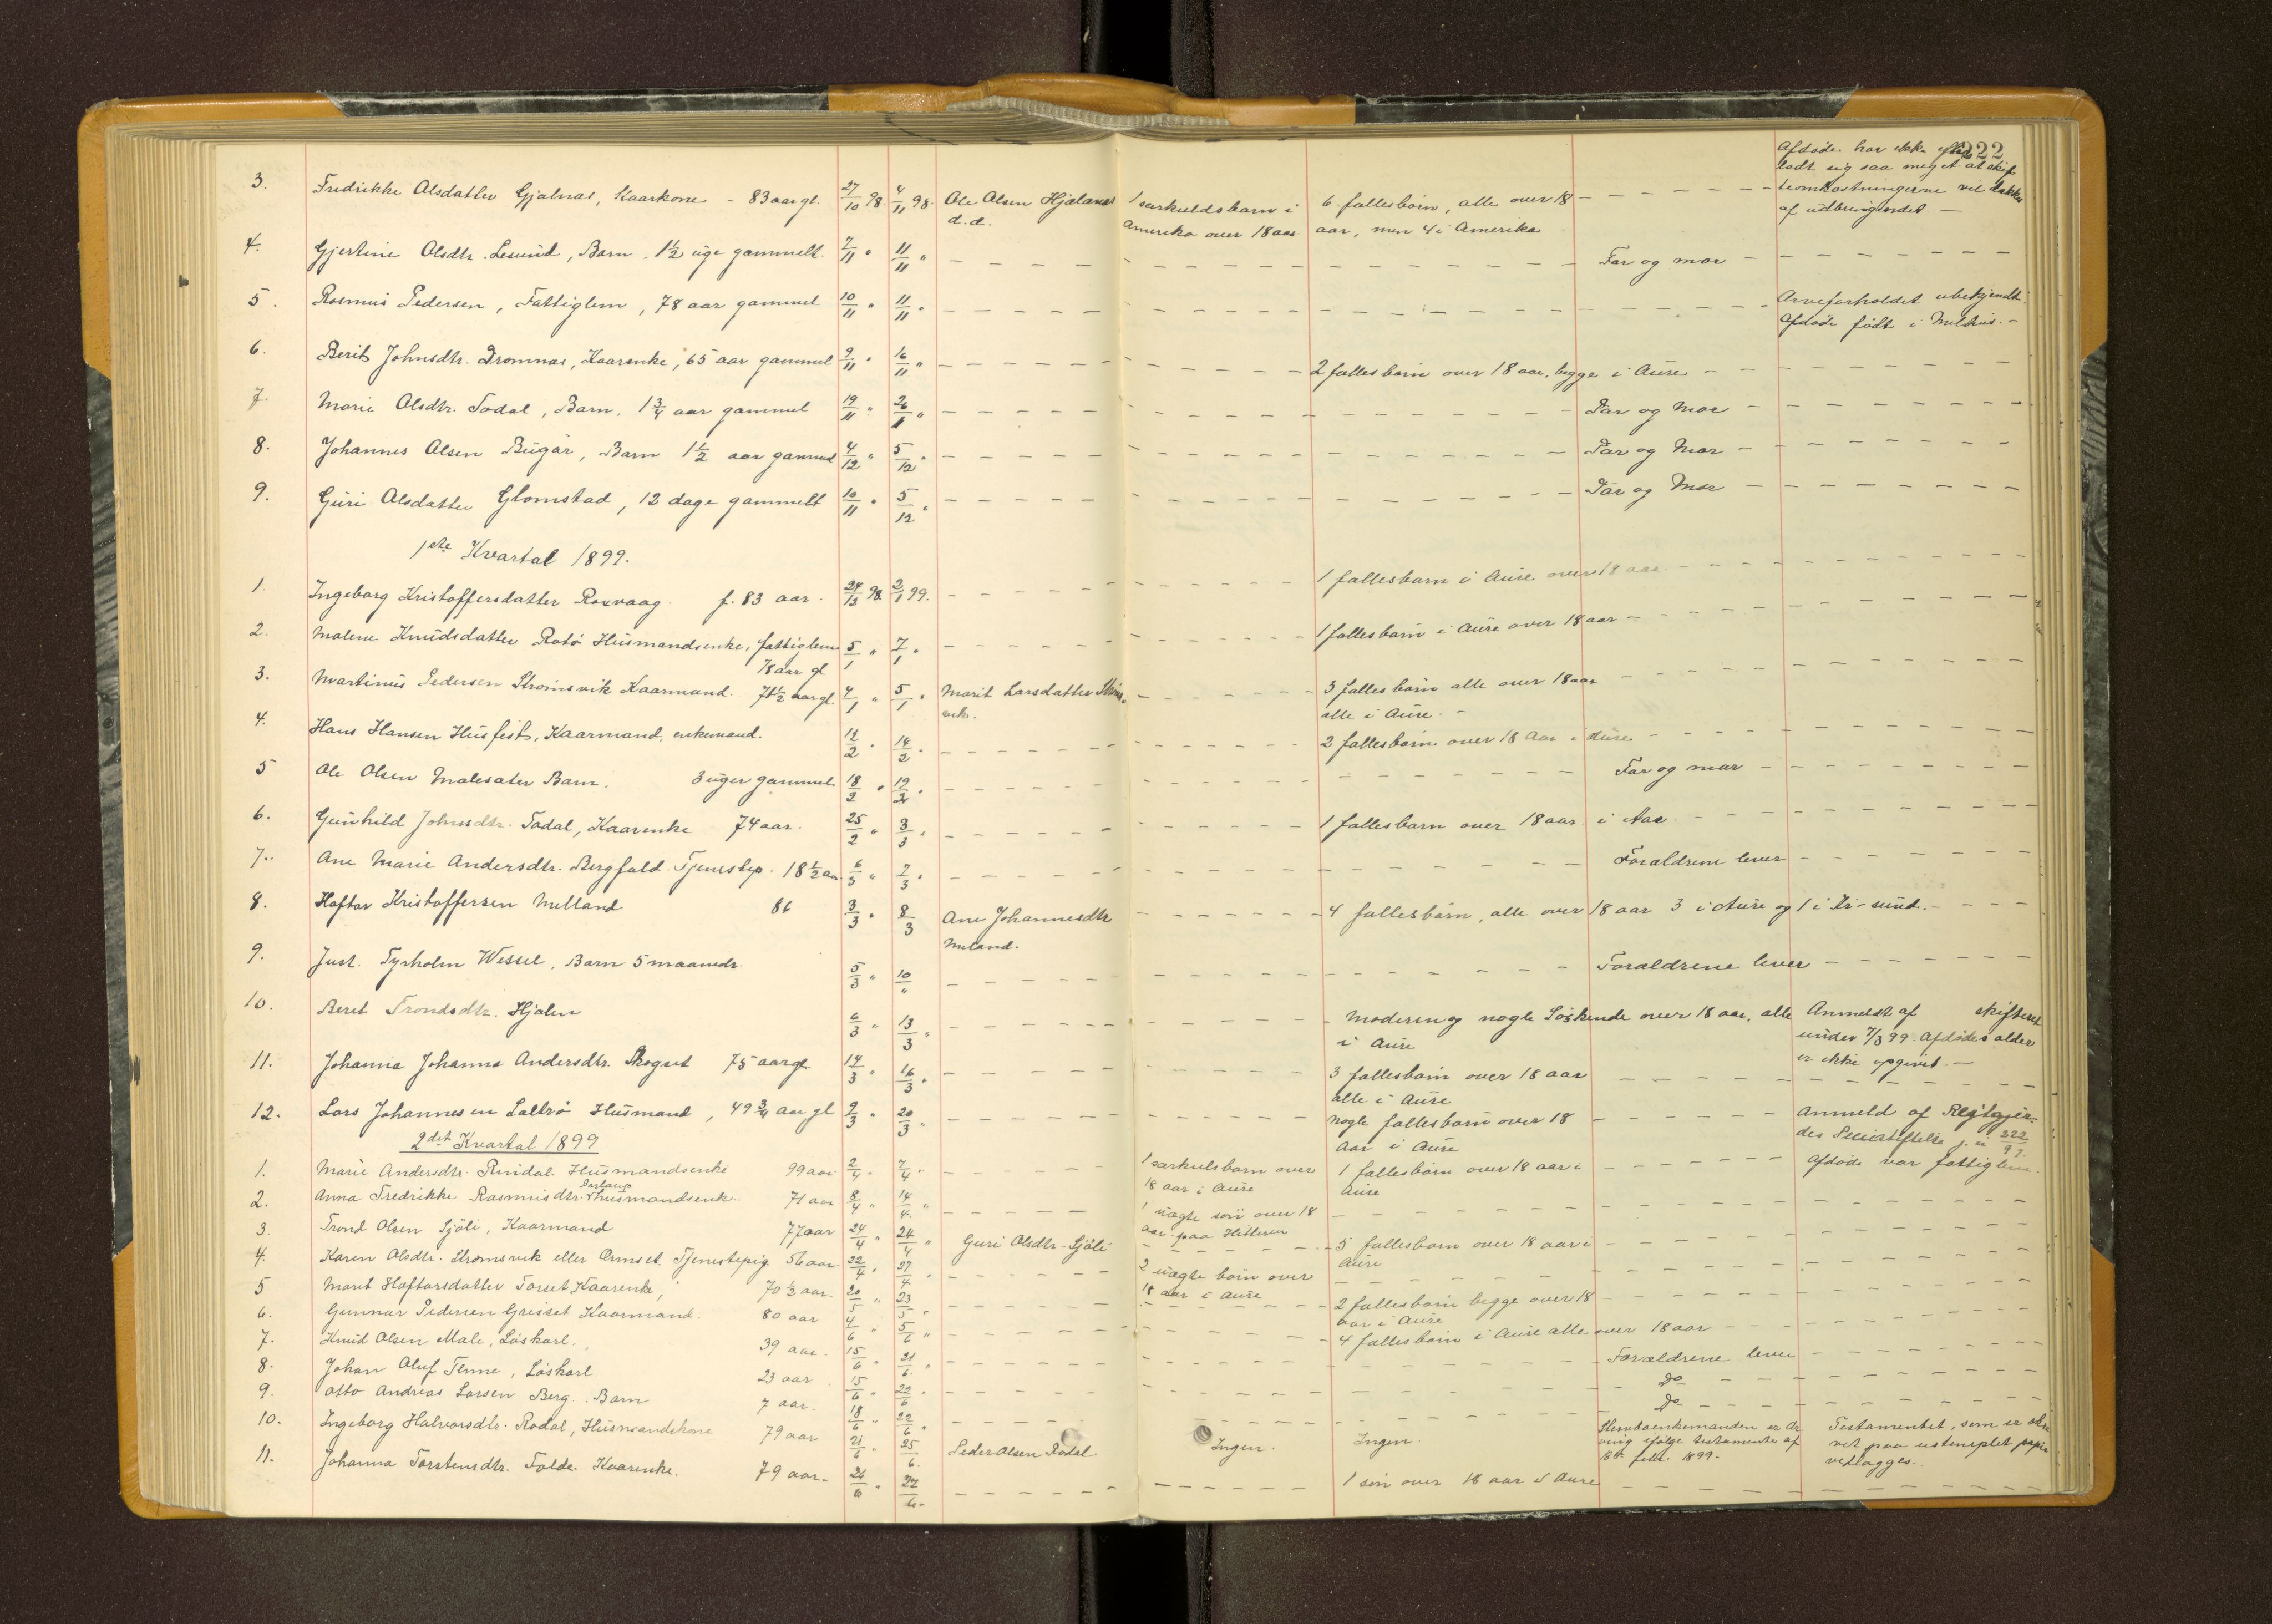 222
3. Fredrikke Olsdatter Gjølnas, Kaarkone - 83 aar gl. 27/10 98. 4/11 98. Ole Olsen Hjølanas 1 særkuldsbarn i 6 fællesbørn, alle over 18 - - - - - - Afdøde har ikke
d.d. Amerika over 18 aar aar, men 4 i Amerika ladt sig saa meget at skif
teomkostningerne vil dækkes
af udbringendet. -
4. Gjertine Olsdtr. Lesund, Barn. 1 1/2 uge gammelt. 7/11 " 11/11 " - - - - Far og mor - - - -
5. Rasmus Pedersen, Fattiglem, 78 aar gammel 10/11 " 11/11 " - - - - Arveforholdet ubekjendt.
Afdøde født i Melhus. -
6. Berit Johnsdtr. Dromnas, Kaarenke, 65 aar gammel 9/11 " 16/11 " - - - - 2 fællesbørn over 18 aar, begge i Aure - - - -
7. Marie Olsdtr. Todal, Barn, 1 3/4 aar gammel 19/11 " 26/11 " - - - - Far og Mor - - - -
8. Johannes Olsen Bugar, Barn 1 1/2 aar gammel 4/12 " 5/12 " - - - - Far og Mor - - - -
9. Guri Olsdatter Glomstad, 12 dage gammelt 10/11 " 5/12 " - - - - Far og Mor - - - -
1ste Kvartal 1899.
1. Ingeborg Kristoffersdatter Roxvaag. f. 83 aar. 24/12 98 2/1 99. - - - - 1 fællesbarn i Aure over 18 aar. - - - -
2. Malene Knudsdatter Rotø Husmandsenke, fattiglem 5/1 " 7/1 " - - - - 1 fællesbarn i Aure over 18 aar - - - -
78 aar gl
3. Martinus Pedersen Strømsvik Kaarmand. 71 1/2 aar gl. 4/1 " 5/1 " Marit Larsdatter Strøms- - - - 3 fællesbørn alle over 18 aar - - - -
vik. alle i Aure. -
4. Hans Hansen Husfest, Kaarmand, enkemand. 12/2 " 14/2 " - - - - 2 fællesbørn over 18 Aar i Aure - - - -
5 Ole Olsen Malesater Barn. 3 uger gammel 18/2 " 19/2 " - - - - Far og mor - - - -
6. Gunhild Johnsdtr. Todal, Kaarenke 74 aar. 25/2 " 3/3 " - - - - 1 fællesbarn over 18 aar i - - - -
7. Ane Marie Andersdtr. Bergfald. Tjenestep. 18 1/2 aar 6/3 " 7/3 " - - - - Forældrene lever - - - -
8. Haftor Kristoffersen Melland 86 3/3 " 8/3 Ane Johannesdtr - - - - 4 fællesbørn, alle over 18 aar 3 i Aure og 1 i Kr-sund. - - - -
Meland.
9. Just. Tyrholm Wessel, Barn 5 maaneder 5/3 " 10/" - - - - Forældrene lever - - - -
10. Beret Trondsdtr. Hjølen 6/3 " 13/3 " - - - - Moderen og nogle Søskende over 18 aar, alle Anmeldt af skifteret
i Aure under 7/3 99. Afdødes alder
er ikke opgivet. -
11. Johanna Johanna Andersdtr. Skogset 75 aar gl 14/3 " 16/3 " - - - - 3 fællesbørn over 18 aar - - - -
alle i Aure
12. Lars Johannesen Saltrø Husmand, 49 3/4 aar gl 9/3 " 20/3 " - - - - nogle fællesbørn over 18 - - - - Anmeld af
Aar i Aure
2det Kvartal 1899
1. Marie Andersdtr. Rindal. Husmandsenke 99 aar 2/4 " 7/4 " - - - - 1 særkulsbarn over 1 fællesbørn over 18 aar i - - - - Afdøde var fattiglem.
18 aar i Aure Aure
2. Anna Fredrikke Rasmusdtr. husmandsenk. 71 aar 8/4 " 14/4 " - - - - 1 uægte søn over 18 - - - -
aar paa Hitteren
3. Trond Olsen Sjøli, Kaarmand 77 aar 24/4 " 24/4 " Guri Olsdtr. Sjøli - - - - 5 fællesbørn over 18 aar i - - - -
Aure
4. Karen Olsdtr. Strømsvik eller Ormset. Tjenestepig 56 aar 22/4 " 27/4 " - - - - 2 uægte børn over - - - -
18 aar i Aure
5 Marit Haftorsdatter Torset Kaarenke, 70 1/2 aar. 20/5 " 23/5 " - - - - 2 fællesbørn begge over 18 - - - -
aar i Aure
6. Gunnar Pedersen Grisset Kaarmand. 80 aar 4/6 " 5/6 " - - - - 4 fællesbørn i Aure alle over 18 aar - - - -
7. Knud Olsen Male, Løskarl. 39 aar. 15/6 " 21/6 " - - - - Forældrene lever - - - -
8. Johan Oluf Tenne, Løskarl 23 aar 15/6 " 22/6 " - - - - do - - - -
9. Otto Andreas Larsen Berg. Barn 7 aar. 18/6 " 22/6 " - - - - do - - - -
10. Ingeborg Halvorsdtr. Rodal, Husmandskone 79 aar 21/6 " 25/6. Peder Olsen Rodal. Ingen. Ingen. enkemanden er Ar Testamentet, som er skre
ving ifølge testamente af vet paa ustemplet papir
8de febr. 1899. vedlægges.
11. Johanna Torstensdtr. Folde. Kaarenke. 79 aar. 26/6 " 27/6. - - - - 1 søn over 18 aar i Aure - - - -